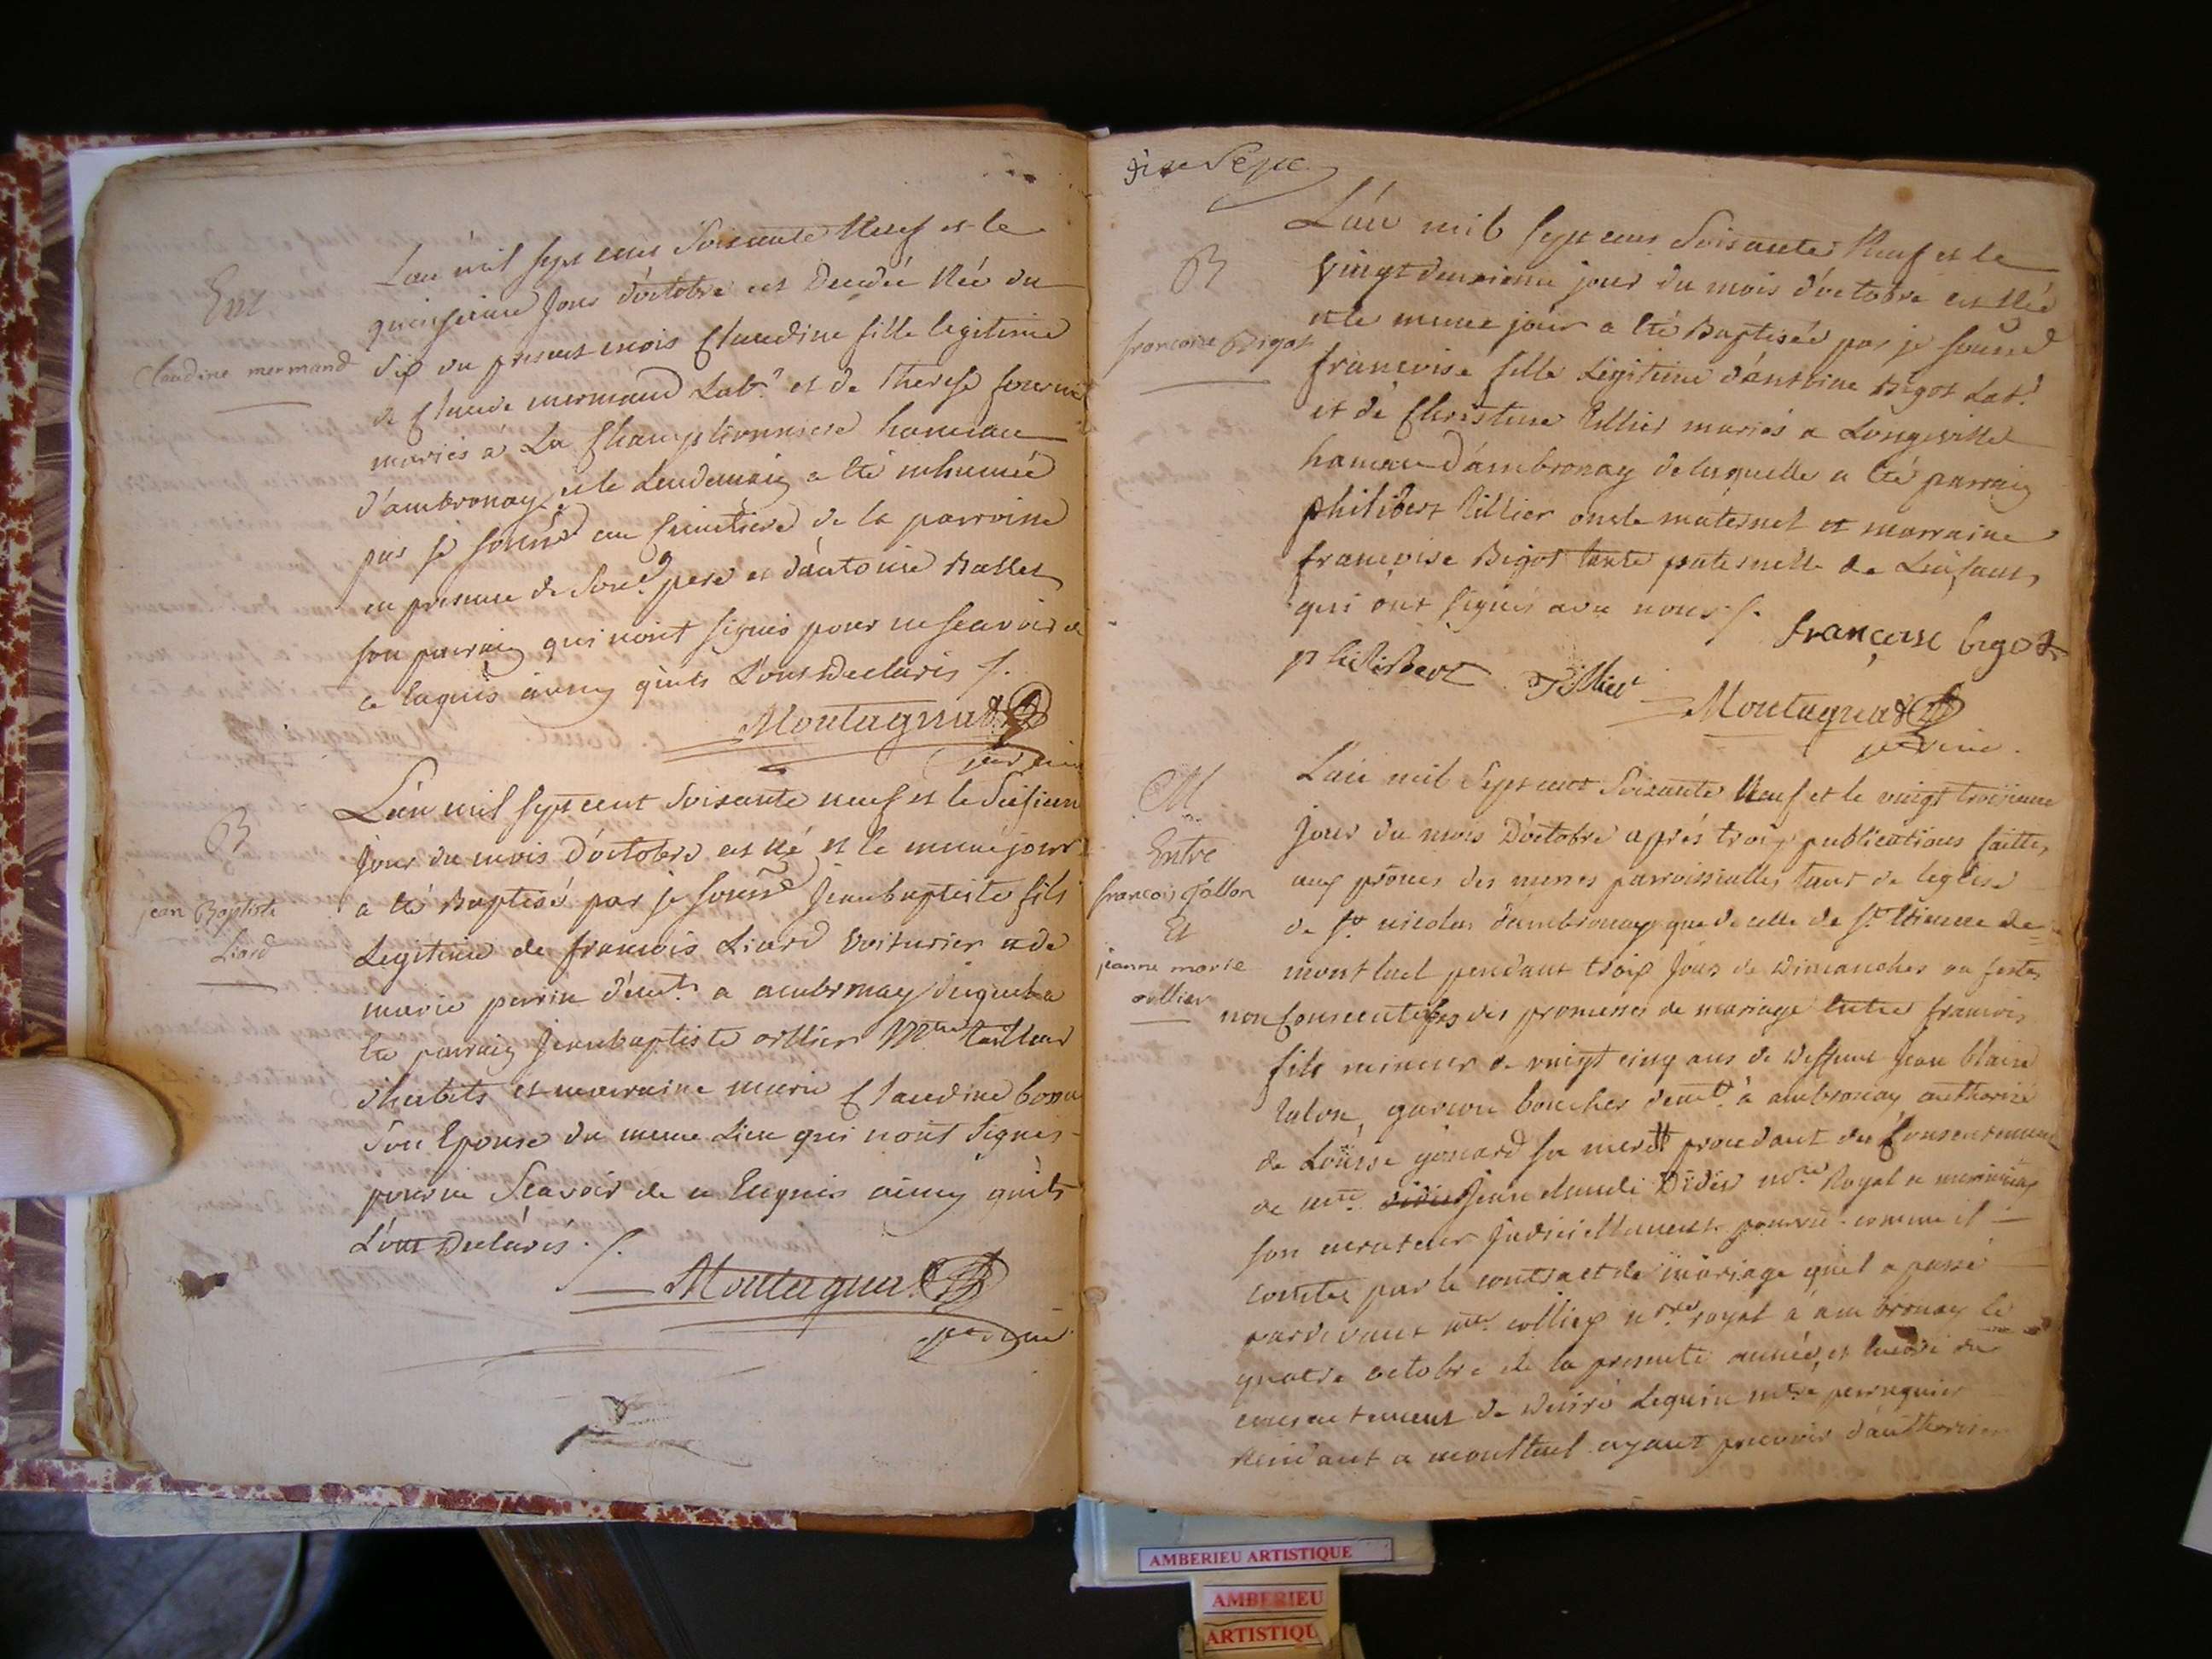 Ent
Claudine mermand
L'an mil sept cens Soixante Neuf et le
quinsieme Jour d'octobre est Decedée Née du
dix du present mois Claudine fille legitime
de Claude mermand Lab.r et de Therese
mariés a La Championniere hameau
d'ambronay et le Lendemain a été inhumée
par je souss.né au Cimetiere de la parroisse
en presence de Sond. pere et d'antoine Ballet
son parrain qui n'ont signés pour ne scavoir de
ce Enquis ainsy qu'ils L'ont Declarés /.
Montagnat
B
jean Baptiste
Liard
L'an mil sept cent Soixante neuf et le Seisieme
Jour du mois D'octobre est Né et le meme jour
a été Baptisé par je souss.né Jeanbaptiste fils
Legitime de francois Liard Voiturier et de
marie perrin demt. a ambronay duquel a
été parrain Jeanbaptiste orllier M.tre tailleur
d'habits et marraine marie Claudine
Son Epouse du meme Lieu qui n'ont Signés
pour ne Scavoir de ce Enquis ainsy qu'ils
L'ont Declarés ./.
Montagnat
B
francoise Bigot
L'an mil sept cens Soixante Neuf et le
vingt deuxieme jour du mois d'octobre est Née
et le meme jour a été Baptisée par je souss.né
francoise fille Legitime d'antoine Bigot Lab.r
et de Christine tillier mariés a Longeville
hameau d'ambronay de laquelle a été parrain
philibert tillier oncle maternel et marraine
francoise Bigot tante paternelle de L'enfant,
qui ont signés avec nous /.
françoise bigot
philibert Tillier
Montagnat
M
Entre
francois Tallon
Et
jeanne marie
orllier
L'an mil Sept cent Soixante Neuf et le vingt troisieme
Jour du mois D'octobre aprés trois publications faittes
aux prônes des messes parroissialles, tant de leglise
de St. nicolas d'ambronay que de celle de St. Etienne de
montluel pendant trois Jours de Dimanches ou festes
non Consecutifs des promesses de mariage Entre francois
fils mineur de vingt cinq ans de deffunt Jean blaise
talon, garcon boucher demt. à ambronay authorisé
de Loüise gonard sa mere procedant du Consentement
de M.tre Jean claude Didier n.re Royal a
son curateur Judiciellement pourvu comme il
conste par le contract de mariage qu'il a passé
pardevant M.tre n.re royal à ambronay le
quatre octobre de la presente année, et encore du
consentement de Leguin M.tre perruquier
Residant a montluel ayant pouvoir d'authoriser
AMBERIEU ARTISTIQUE
AMBERIEU
ARTISTIQU